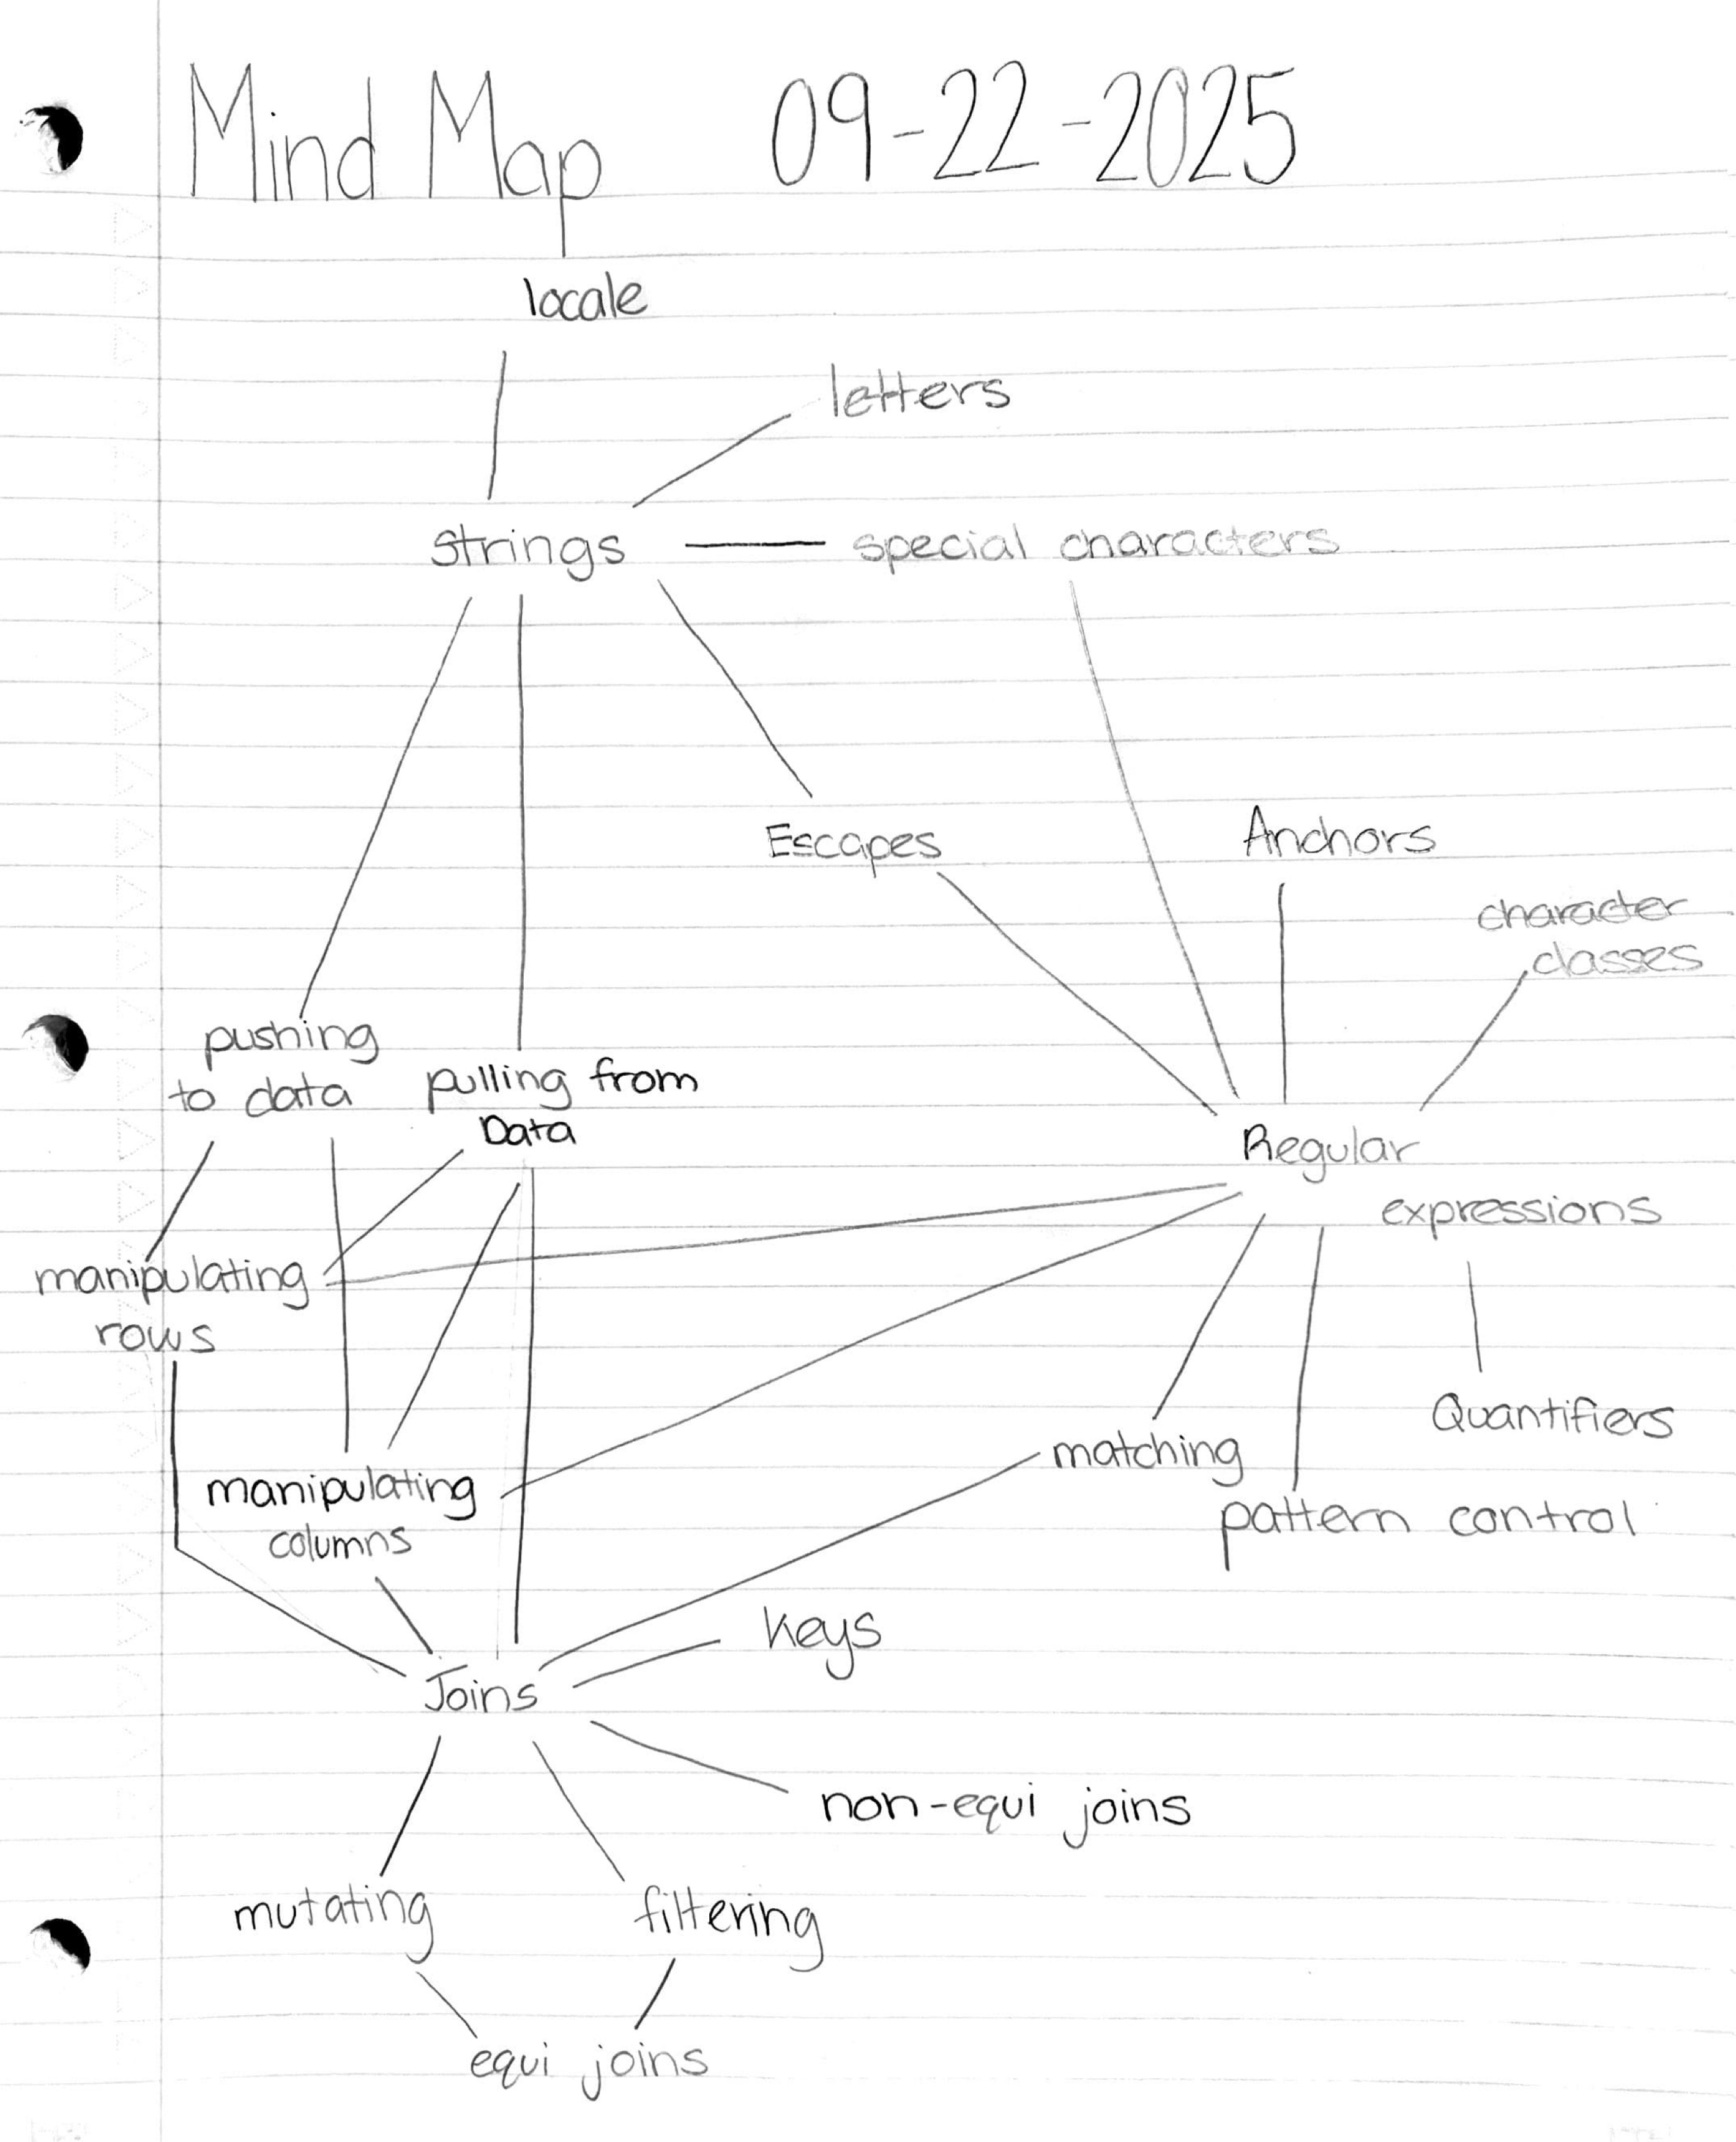 Mind Map 09-22-2025
locale
letters
strings
special characters
Escapes
Anchors
character
classes
pushing
to data
pulling from
Data
Regular
expressions
manipulating
rows
Quantifiers
matching
manipulating
columns
pattern control
keys
Joins
non-equi joins
mutating
filtering
equi joins